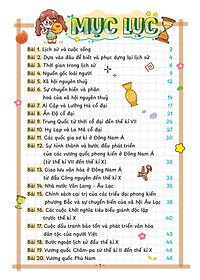 MỤC LỤC
Bài 1. Lịch sử và cuộc sống 2
Bài 2. Dựa vào đâu để biết và phục dựng lại lịch sử 4
Bài 3. Thời gian trong lịch sử 6
Bài 4. Nguồn gốc loài người 9
Bài 5. Xã hội nguyên thuỷ 11
Bài 6. Sự chuyển biến và phân
hoá của xã hội nguyên thuỷ 14
Bài 7. Ai Cập và Lưỡng Hà cổ đại 17
Bài 8. Ấn Độ cổ đại 21
Bài 9. Trung Quốc từ thời cổ đại đến thế kỉ VII 24
Bài 10. Hy Lạp và La Mã cổ đại 27
Bài 12. Sự hình thành và bước đầu phát triển
của các vương quốc phong kiến ở Đông Nam Á
(từ thế kỉ VII đến thế kỉ X) 31
Bài 13. Giao lưu văn hóa ở Đông Nam Á
từ đầu Công nguyên đến thế kỉ X 33
Bài 14. Nhà nước Văn Lang - Âu Lạc 35
Bài 15. Chính sách cai trị của các triều đại phong kiến
phương Bắc và sự chuyển biến của xã hội Âu Lạc 38
Bài 16. Các cuộc khởi nghĩa tiêu biểu giành độc lập
trước thế kỉ X 40
Bài 17. Cuộc đấu tranh bảo tồn và phát triển văn hóa
dân tộc của người Việt 43
Bài 18. Bước ngoặt lịch sử đầu thế kỉ X 44
Bài 19. Vương quốc Chăm-pa từ thế kỉ II đến thế kỉ X 46
Bài 20. Vương quốc Phù Nam 48